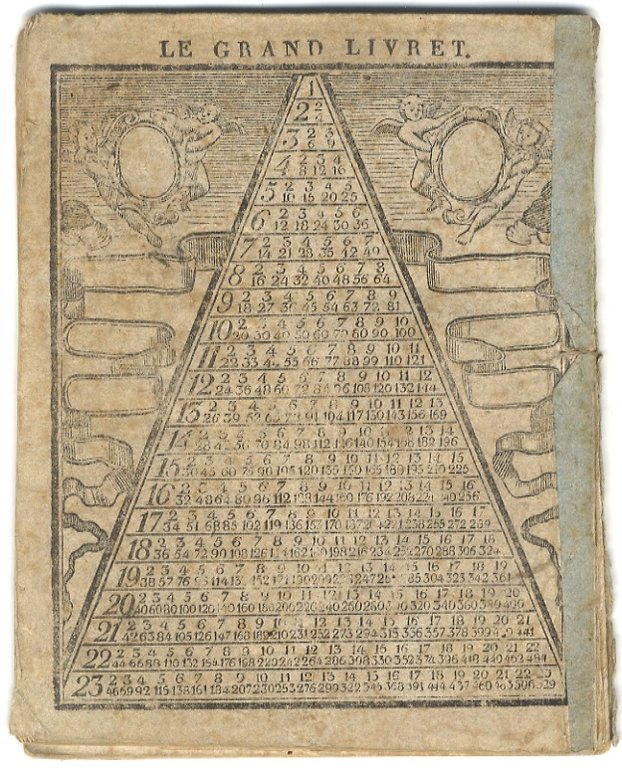 LE GRAND LIVRET.
1
2 2
4
3 2 3
6 9
4 2 3 4
8 12 16
5 2 3 4 5
10 15 20 25
6 2 3 4 5 6
12 18 24 30 36
7 2 3 4 5 6 7
14 21 28 35 42 49
8 2 3 4 5 6 7 8
16 24 32 40 48 56 64
9 2 3 4 5 6 7 8 9
18 27 36 45 54 63 72 81
10 2 3 4 5 6 7 8 9 10
20 30 40 50 60 70 80 90 100
11 2 3 4 5 6 7 8 9 10 11
22 33 44 55 66 77 88 99 110 121
12 2 3 4 5 6 7 8 9 10 11 12
24 36 48 60 72 84 96 108 120 132 144
13 2 3 4 5 6 7 8 9 10 11 12 13
26 39 52 65 78 91 104 117 130 143 156 169
14 2 3 4 5 6 7 8 9 10 11 12 13 14
28 42 56 70 84 98 112 126 140 154 168 182 196
15 2 3 4 5 6 7 8 9 10 11 12 13 14 15
30 45 60 75 90 105 120 135 150 165 180 195 210 225
16 2 3 4 5 6 7 8 9 10 11 12 13 14 15 16
32 48 64 80 96 112 128 144 160 176 192 208 224 240 256
17 2 3 4 5 6 7 8 9 10 11 12 13 14 15 16 17
34 51 68 85 102 119 136 153 170 187 238 255 272 289
18 2 3 4 5 6 7 8 9 10 11 12 13 14 15 16 17 18
36 54 72 90 108 126 162 198 216 234 252 270 288 306 324
19 2 3 4 5 6 7 8 9 10 11 12 13 14 15 16 17 18 19
38 57 76 95 114 152 171 190 209 285 304 323 342 361
20 2 3 4 5 6 7 8 9 10 11 12 13 14 15 16 17 18 19 20
40 60 80 100 140 160 180 200 220 240 260 280 320 340 360 380 400
21 2 3 4 5 6 7 8 9 10 11 12 13 14 15 16 17 18 19 20 21
42 63 84 105 126 147 168 189 210 231 252 273 294 315 336 357 378 399 441
22 2 3 4 5 6 7 8 9 10 11 12 13 14 15 16 17 18 19 20 21 22
44 66 88 110 132 154 176 198 220 242 264 286 308 330 352 374 396 418 440 462 484
23 2 3 4 5 6 7 8 9 10 11 12 13 14 15 16 17 18 19 20 21
46 69 92 115 138 161 184 207 230 253 276 299 322 345 368 391 414 437 460 483 506 529